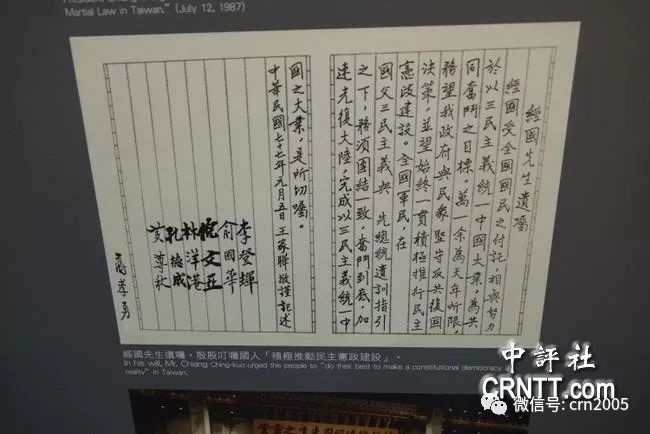 Martial Law in Taiwan." (July 12, 1987)
經國先生遺囑
經國受全國國民之付託，相與努力
於以三民主義統一中國大業，為共
同奮鬥之目標，萬一余為天年所限，
務望我政府與民眾堅守反共復國
決策，並望始終一貫積極推行民主
憲政建設。全國軍民，在
國父三民主義與 先總統遺訓指引
之下，務須團結一致，奮鬥到底，加
速光復大陸，完成以三民主義統一中
國之大業，是所切囑。
中華民國七十七年元月五日 王家驊敬謹記述
李登輝
俞國華
倪文亞
林洋港
孔德成
黃尊秋
蔣孝勇
經國先生遺囑，殷殷叮囑國人「積極推動民主憲政建設」。
In his will, Mr. Chiang Ching-kuo urged the people to "do their best to make a constitutional democracy a
reality" in Taiwan.
中評社
CRNTT.com
微信号: crn2005